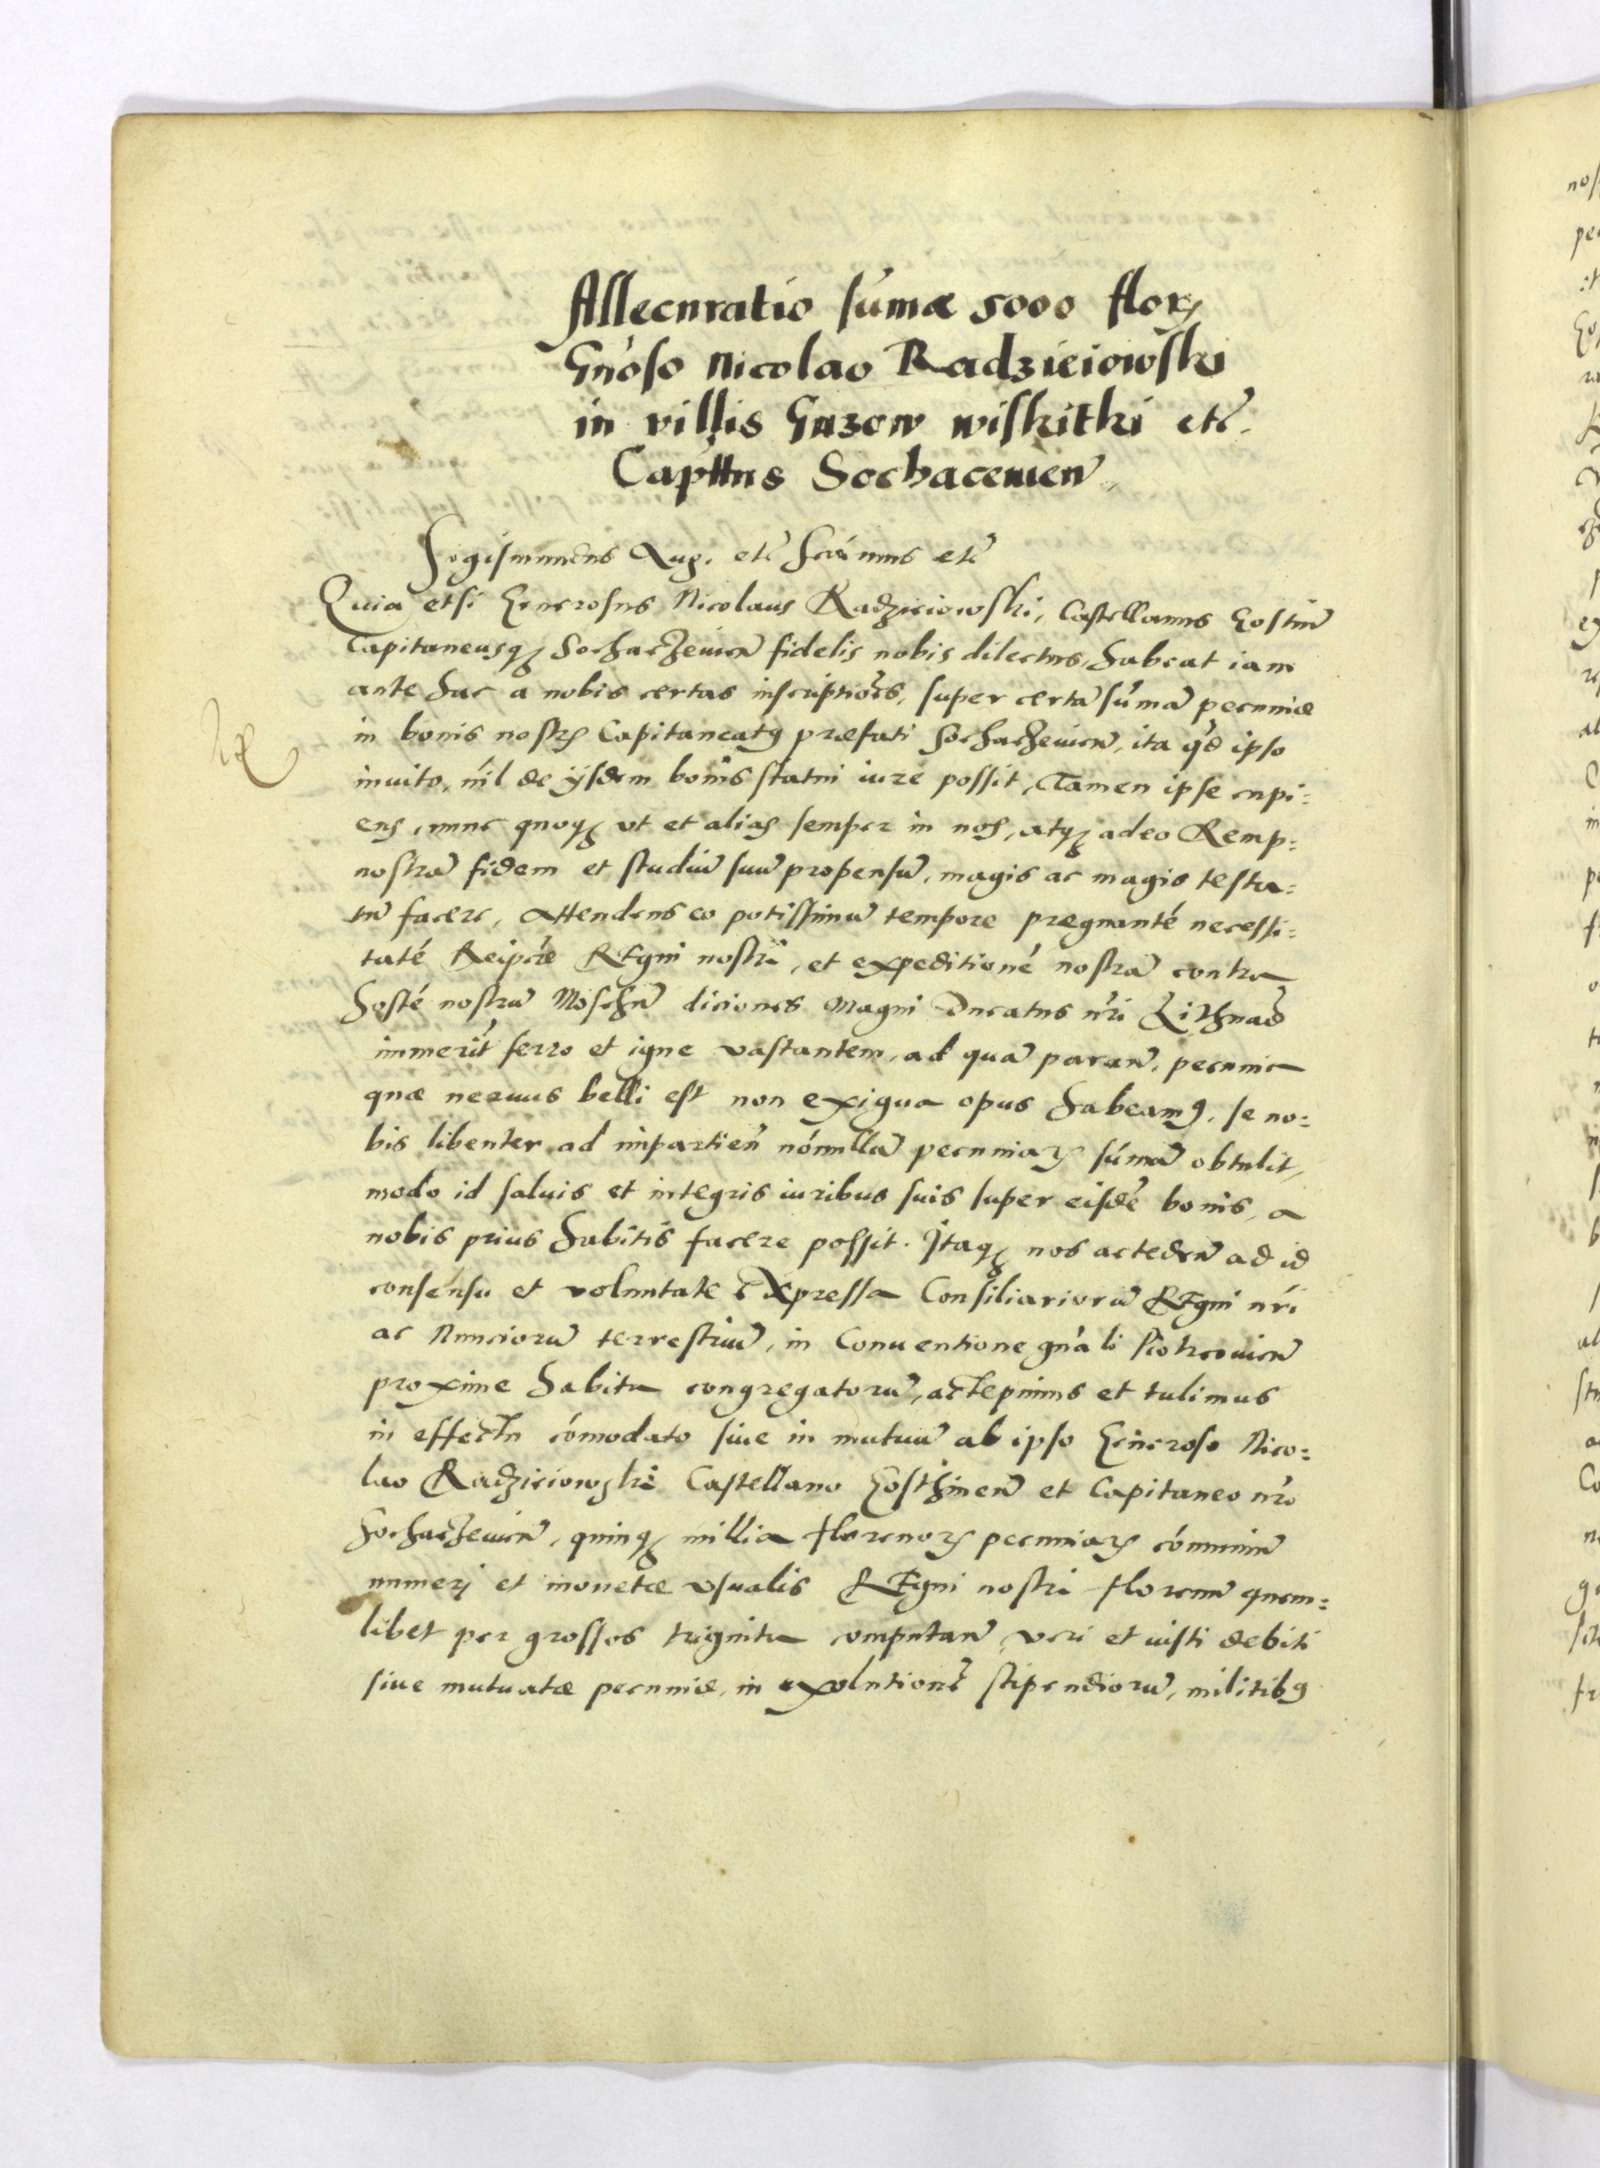 Assecuratio sūmæ 5000 floꝝ
Gn̄oso Nicolao Radzieiowski
in villis Guzow wiskitki etc̄.
Capttus Sochaceuien̄
Sigismundus Aug. etc̄ Scim̄us etc̄
Quia etsi Generosus Nicolaus Radzieiowski, Castellanus Gostin̄
Capitaneusqꝫ Sochaczeuien̄ fidelis nobis dilectus, habeat iam
ante hac a nobis certas inscriptiōes, super certā sūmā pecuniæ
in bonis nostrꝭ Capitaneatꝯ præfati Sochaczeuien̄, ita qd̄ ipso
inuito, nīl de ijsdem bonis statui iure possit, Tamen ipse cupi=
ens, nunc quoqꝫ vt et alias semper in nos, atqꝫ adeo Remp=
nostrā fidem et studiū suū propensū, magis ac magis testa=
tū facere, Attendens eo potissimū tempore prægnantē necessi=
tatē Reipcǣ REgni nostri, et expeditionē nostrā contra
hostē nostrū Moschū diciones Magni Ducatus nr̄i Lithuaē
immerit̄ ferro et igne vastantem, ad quā paranā, pecunia
quæ neruus belli est non exigua opus habeamꝯ, se no=
bis libenter ad impartien̄ nōnullā pecuniaꝝ sūmā obtulit,
modo id saluis et integris iuribus suis super eisdē bonis, a
nobis prius habitis facere possit. Itaqꝫ nos acceden̄ ad id
consensu et voluntate Expressa Consiliariorū REgni nr̄i
ac Nunciorū terrestriū, in Conuentione gn̄ali Piotrcouien̄
proxime habita congregatorū, accepimus et tulimus
in effectu cōmodato siue in mutuū ab ipso Generoso Nico=
lao Radzieiowski Castellano Gosthinen̄ et Capitaneo nr̄o
Sochaczeuien̄, quinqꝫ millia florenoꝝ pecuniaꝝ cōmuniū
numerj et monetæ vsualis REgni nostri florenū quem=
libet per grossos triginta computan̄, veri et iusti debiti
siue mutuatæ pecuniæ, in exolutionē stipendiorū, militibꝯ